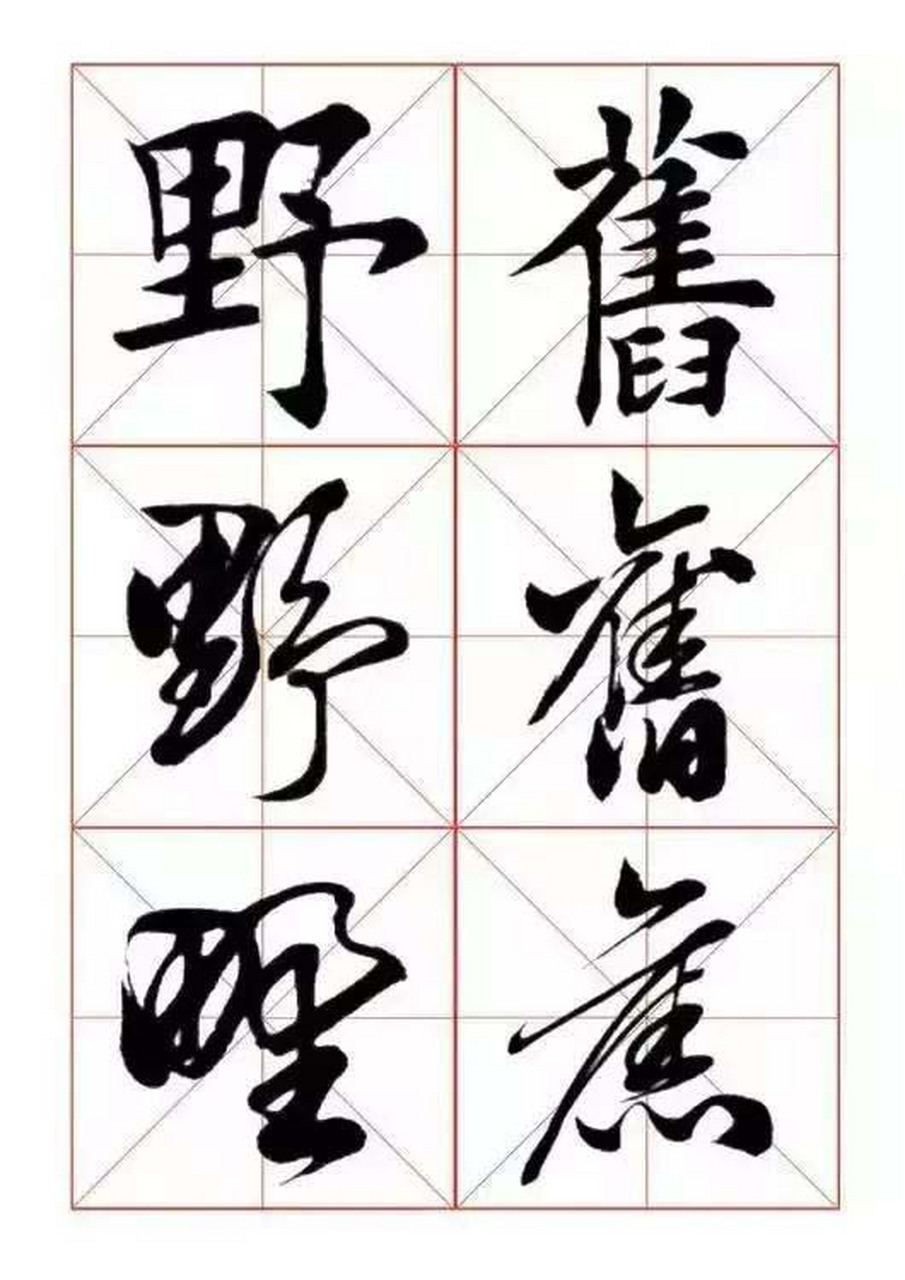 野 舊
野 舊
野 舊